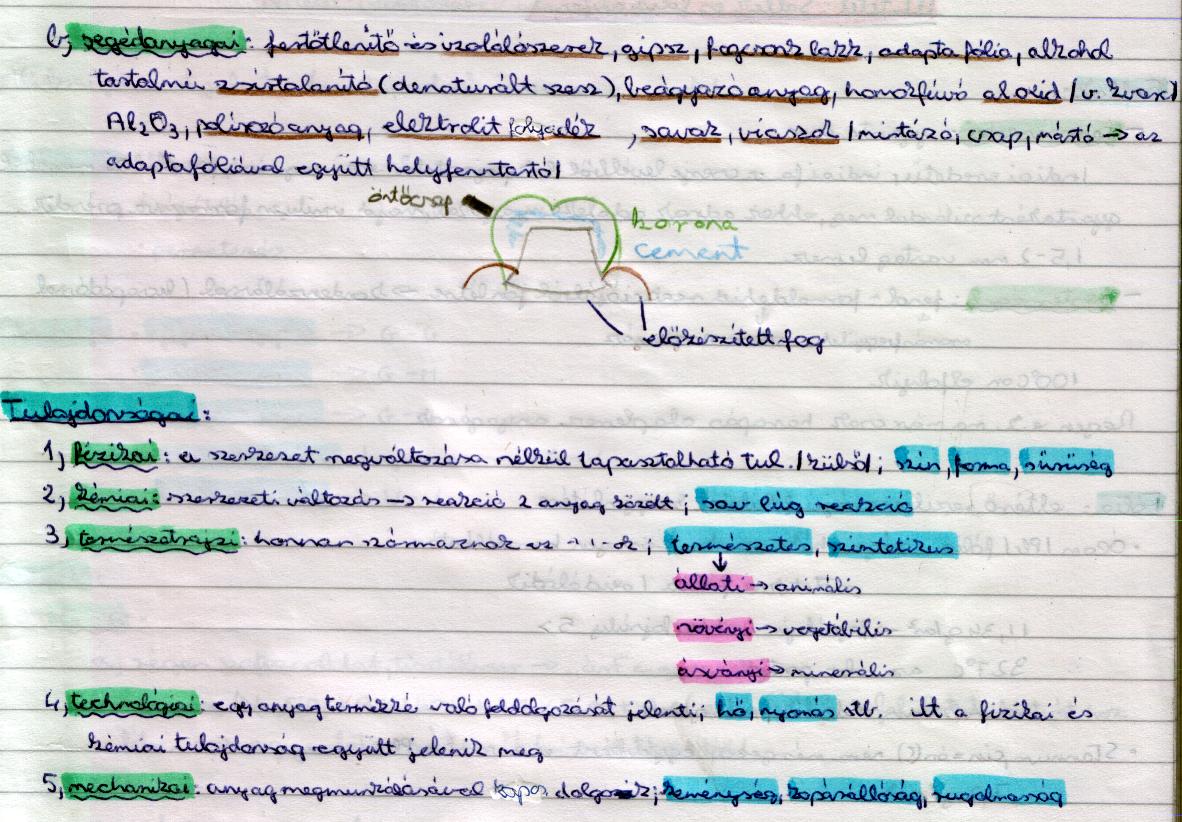 b, segédanyagai: festőtlenítő-és izolálószerek, gipsz, fogcsonk lakk, adapta fólia, alkohol
tartalmú zsírtalanító (denaturált szesz), beágyazóanyag, homorfúvó aloxid / v. kvarc/
Al2O3, polírozóanyag, elektrolit folyadék, savak, viaszok /mintázó, csap, mártó → az
adaptafóliával együtt helyfenntartó/
öntőcsap
korona
cement
előkészített fog
Tulajdonságai:
1, fizikai: a szerkezet megváltozása nélkül tapasztalható tul. /külső/; szín, forma, sűrűség
2, kémiai: szerkezeti változás → reakció 2 anyag között; sav lúg reakció
3, természetrajzi: honnan származnak az -ok; természetes, szintetikus
↓
állati → animális
növényi → vegetábilis
ásványi → minerális
4, technológiai: egy anyag termékké való feldolgozását jelenti; hő, nyomás stb. itt a fizikai és
kémiai tulajdonság együtt jelenik meg
5, mechanikai: anyag megmunkálásával kapcs dolgok; keménység, kopásállóság, rugalmasság